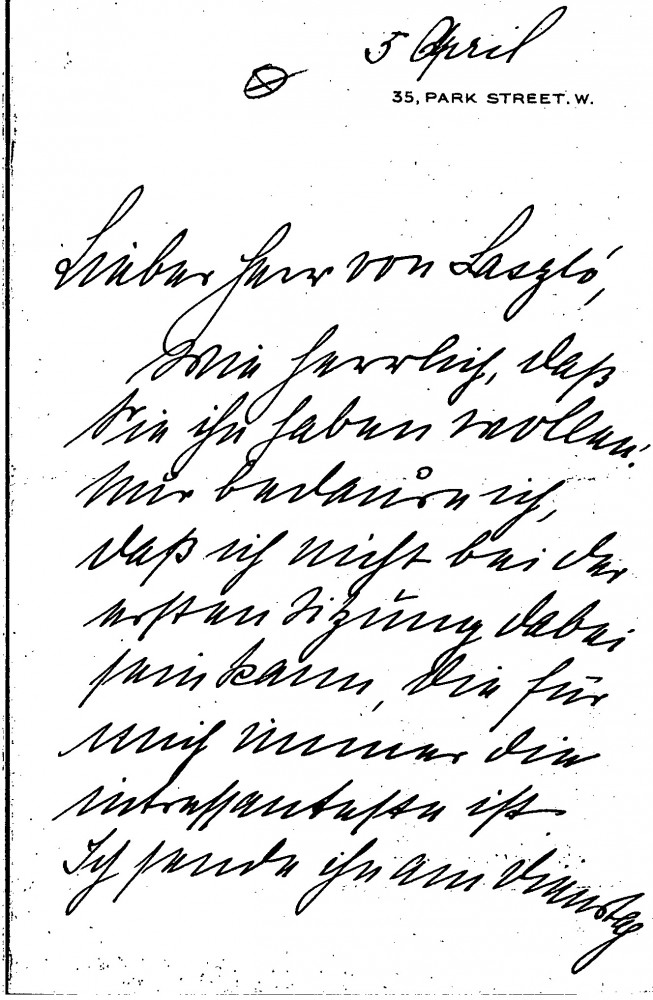 5 April
35, PARK STREET. W.
Lieber Herr von Laszló,
Wie herrlich, daß
Sie ihn haben wollen!
Nur bedaure ich,
daß ich nicht bei der
ersten Sizung dabei
sein kann, die für
mich immer die
intressanteste ist.
Ich sende ihn am Dienstag